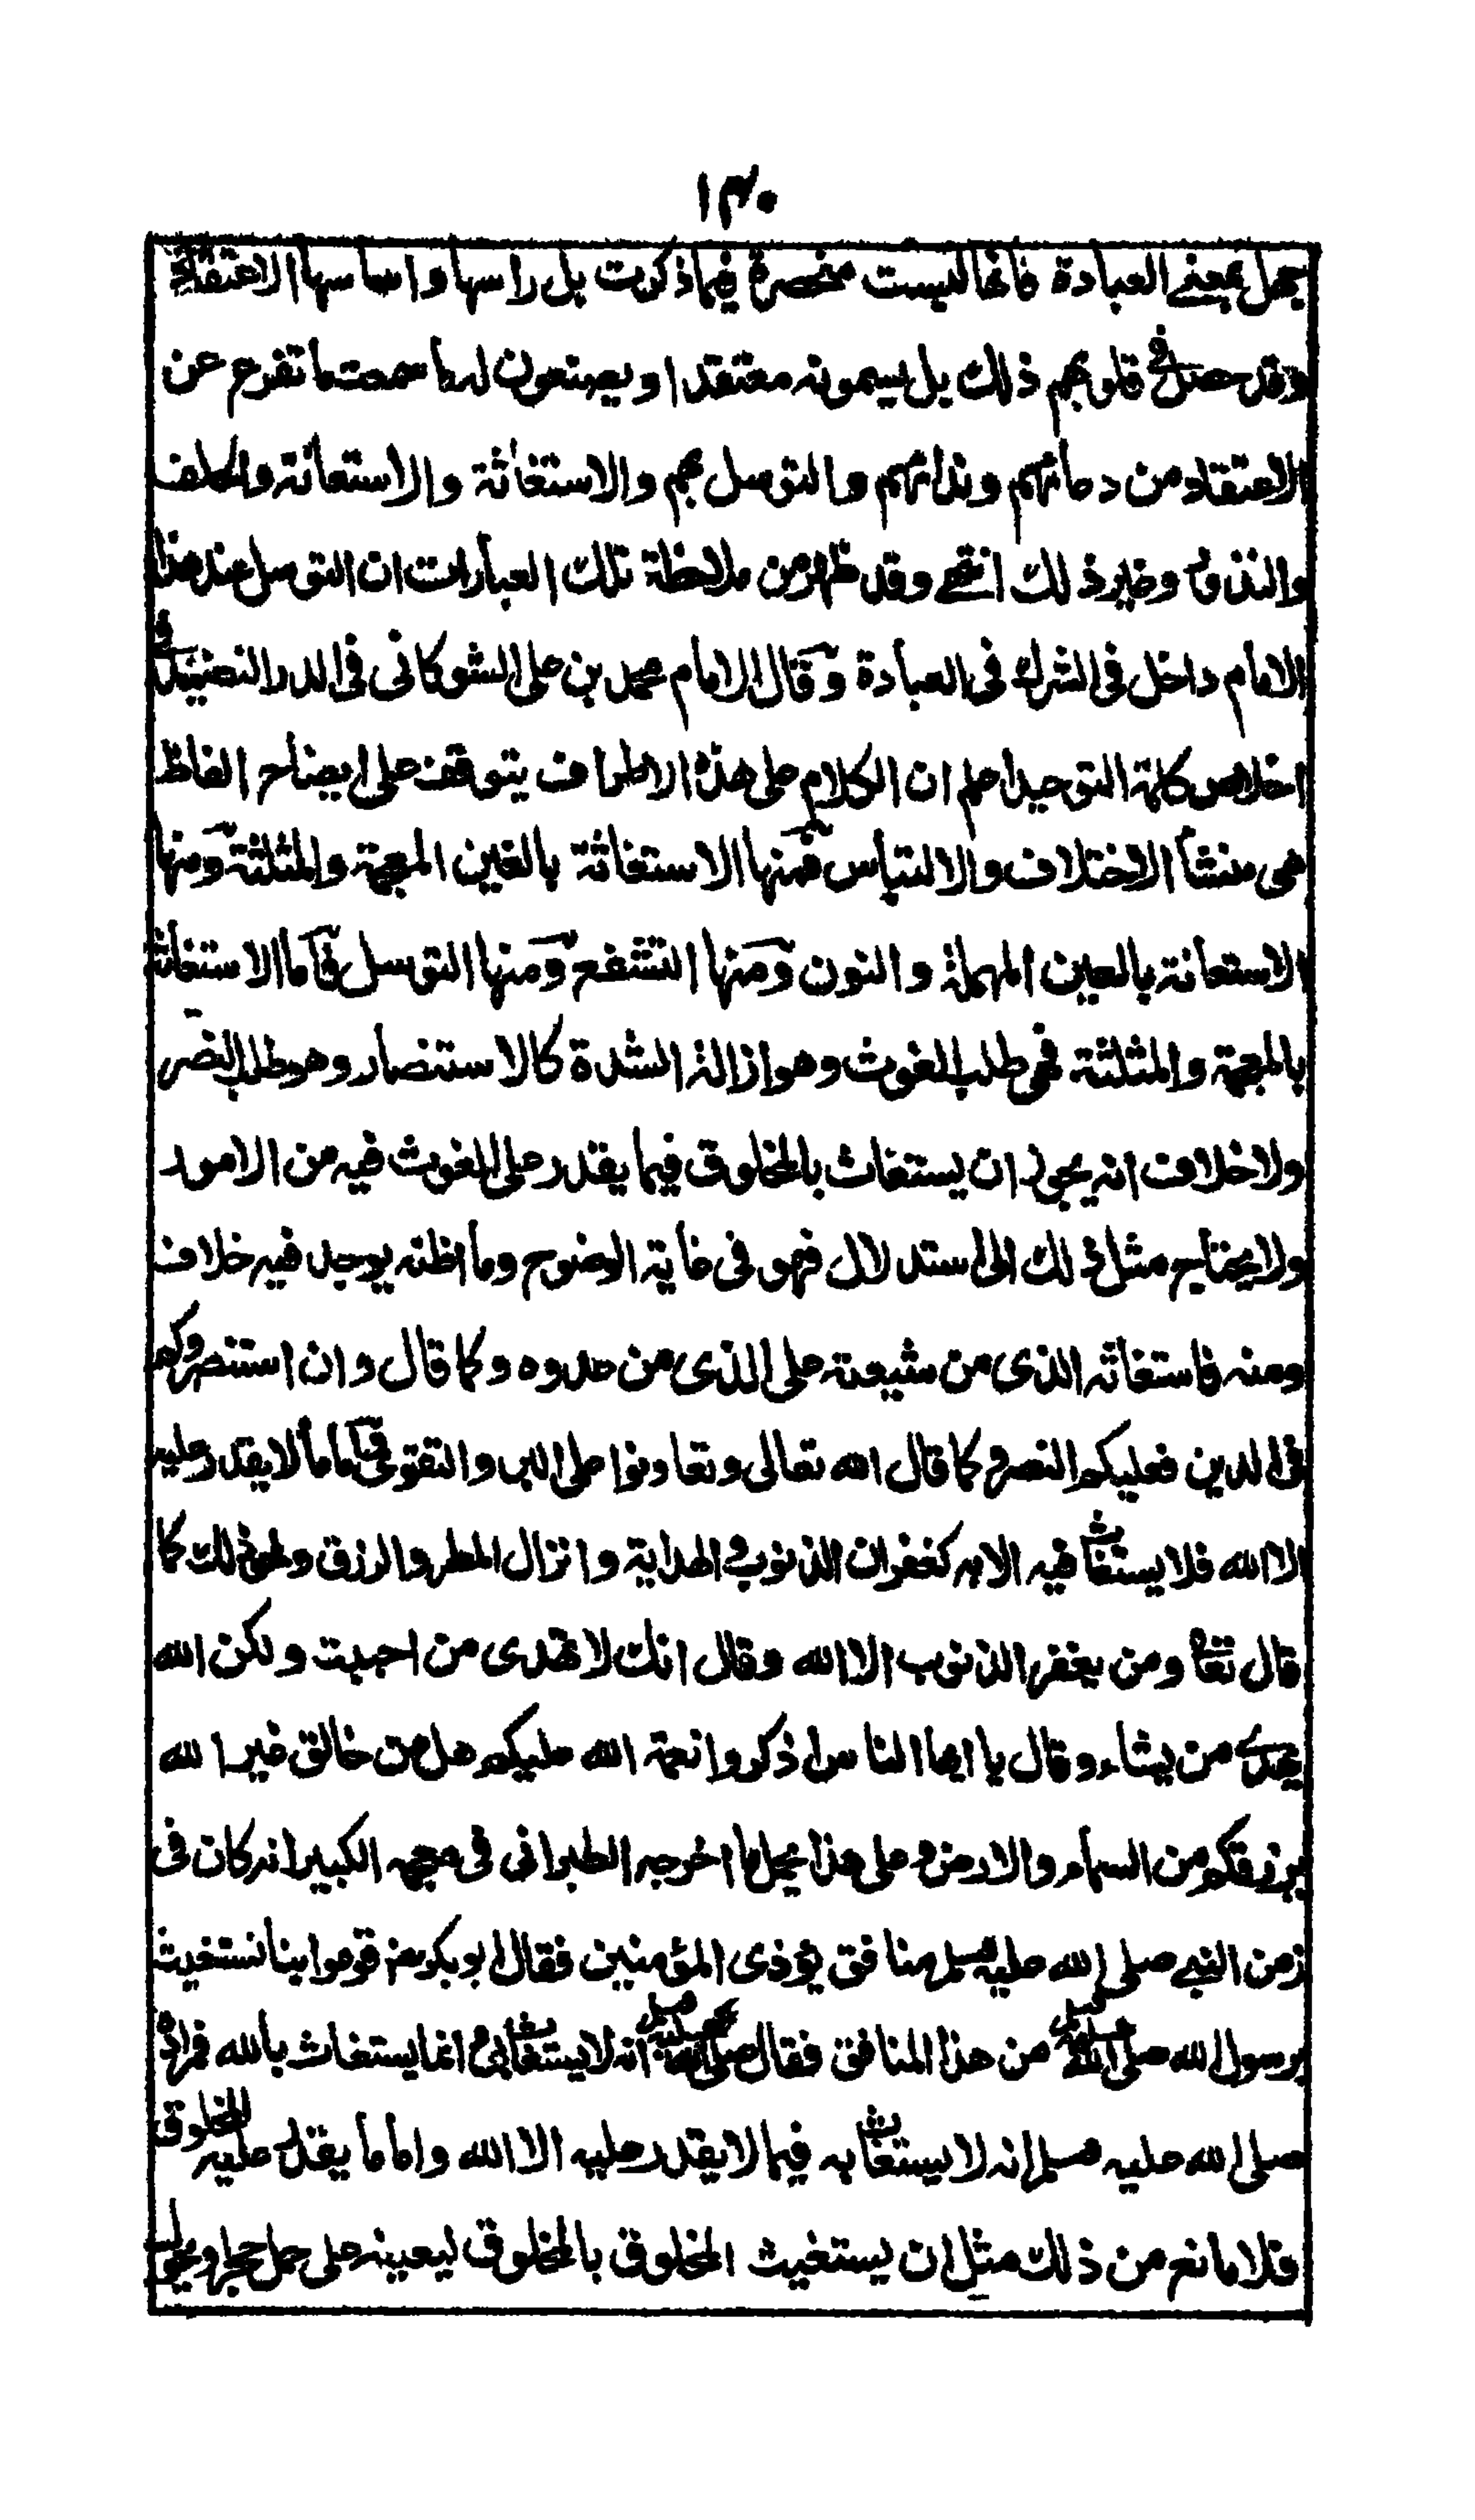 ١٣٠
بجهل بمعنى العبادة فانها ليست منحصرة فيما ذكرت بل راسها واساسها الاعتقاد
وقد حصل فى قلوبهم ذلك بل يسمونه معتقدا ويصنعون له ما سمعت ما تفرع عن
الاعتقاد من دعائهم وندائهم والتوسل بهم والاستغاثة والاستعانة والحلف
والنذر وغير ذلك انتهى وقد ظهر من ملاحظة تلك العبارات ان التوسل عند هذا
الامام داخل فى الشرك فى العبادة وقال الامام محمد بن على الشوكانى فى الدر النضيد فى
اخلاص كلمة التوحيد اعلم ان الكلام على هذه الاطراف يتوقف على ايضاح الفاظ
هى منشأ الاختلاف والالتباس فمنها الاستغاثة بالغين المعجمة والمثلثة ومنها
الاستعانة بالعين المهملة والنون ومنها التشفع ومنها التوسل فاما الاستغاثة
بالمعجمة والمثلثة فهى طلب الغوث وهو ازالة الشدة كالاستنصار وهو طلب النصر
ولا خلاف انه يجوز ان يستغاث بالمخلوق فيما يقدر على الغوث فيه من الامور
ولا يحتاج مثل ذلك الى ستدلال فهو فى غاية الوضوح وما اظنه يوجد فيه خلاف
ومنه فاستغاثه الذى من شيعته على الذى من عدوه وكما قال وان استنصروكم
فى الدين فعليكم النصر كما قال الله تعالى وتعاونوا على البر والتقوى واما ما لا يقدر عليه
الا الله فلا يستغاث فيه الا به كغفران الذنوب والهداية وانزال المطر والرزق ونحو ذلك كما
قال تعا ومن يغفر الذنوب الا الله وقال انك لا تهدى من احببت ولكن الله
يهدى من يشاء وقال يا ايها الناس اذكروا نعمة الله عليكم هل من خالق غير الله
يرزقكم من السماء والارض وعلى هذا يحمل ما اخرجه الطبرانى فى معجمه الكبير انه كان فى
زمن النبى صلى الله عليه وسلم منافق يؤذى المؤمنين فقال ابو بكر رض قوموا بنا نستغيث
برسول الله صلى الله عليه وسلم من هذا المنافق فقال صلى الله عليه وسلم انه لا يستغاث بى انما يستغاث بالله فمراده
صلى الله عليه وسلم انه لا يستغاث به فيما لا يقدر عليه الا الله واما ما يقدر عليه المخلوق
فلا مانع من ذلك مثل ان يستغيث المخلوق بالمخلوق ليعينه على حمل حجر او يحول